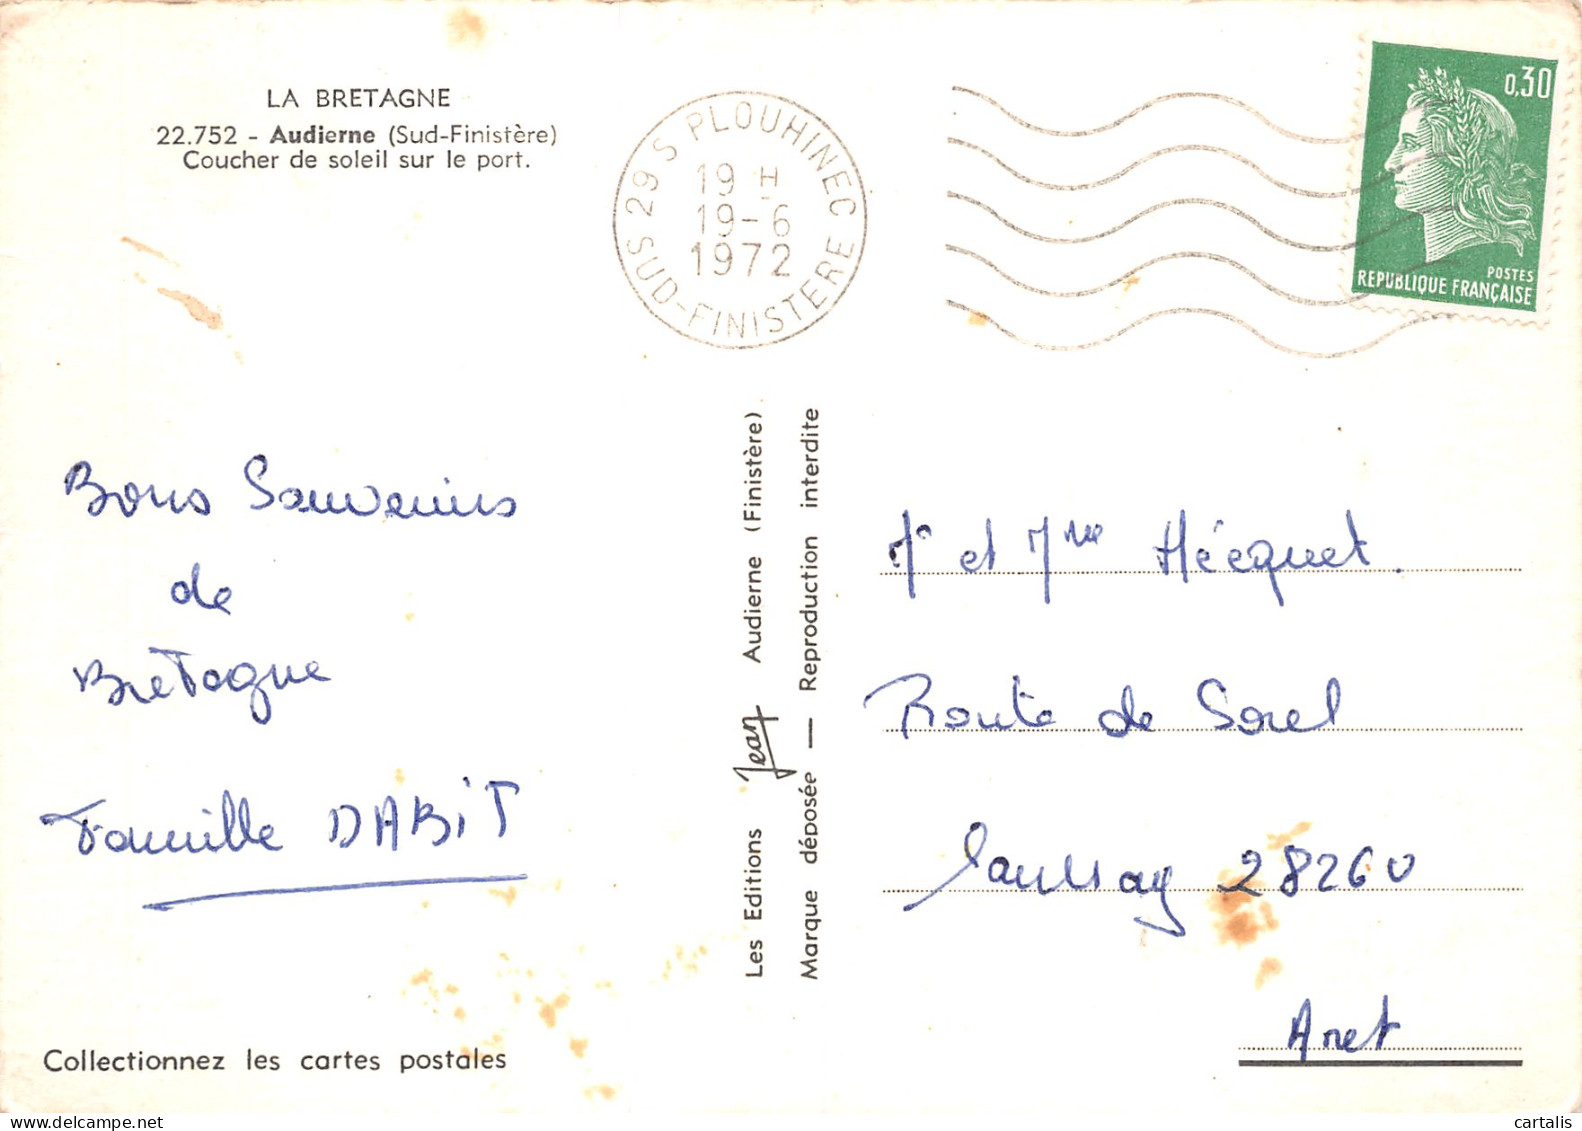 LA BRETAGNE
22.752 - Audierne (Sud-Finistère)
Coucher de soleil sur le port.
29 S PLOUHINEC
19 H
19-6
1972
SUD-FINISTERE
0,30
POSTES
REPUBLIQUE FRANÇAISE
Bons Souvenirs
de
Bretagne
Famille DABIT
Collectionnez les cartes postales
Les Editions Jean Audierne (Finistère)
Marque déposée — Reproduction interdite
Mr et Mme Hécquet.
Route de Sorel
Saussay 28260
Anet
delcampe.net
cartalis